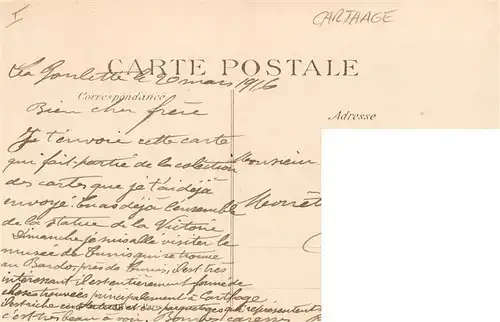 I
CARTHAGE
CARTE POSTALE
La Goulette le 20 mars 1916
Correspondance
Adresse
Bien cher frère
Je t'envoie cette carte
qui fait partie de la colection
Monsieur
des cartes que je t'ai déjà
envoyé. tu as déjà l'ensemble
de la statue de la Victoire
Dimanche je suis allé visiter le
musée de Tunis qui se trouve
au Bardo, près de Tunis, il est très
intéressant il est entièrement formé de
choses trouvées principalement à Carthage
il est riche en statues et en que représentent
c'est très beau à voir. Bonnes caresses